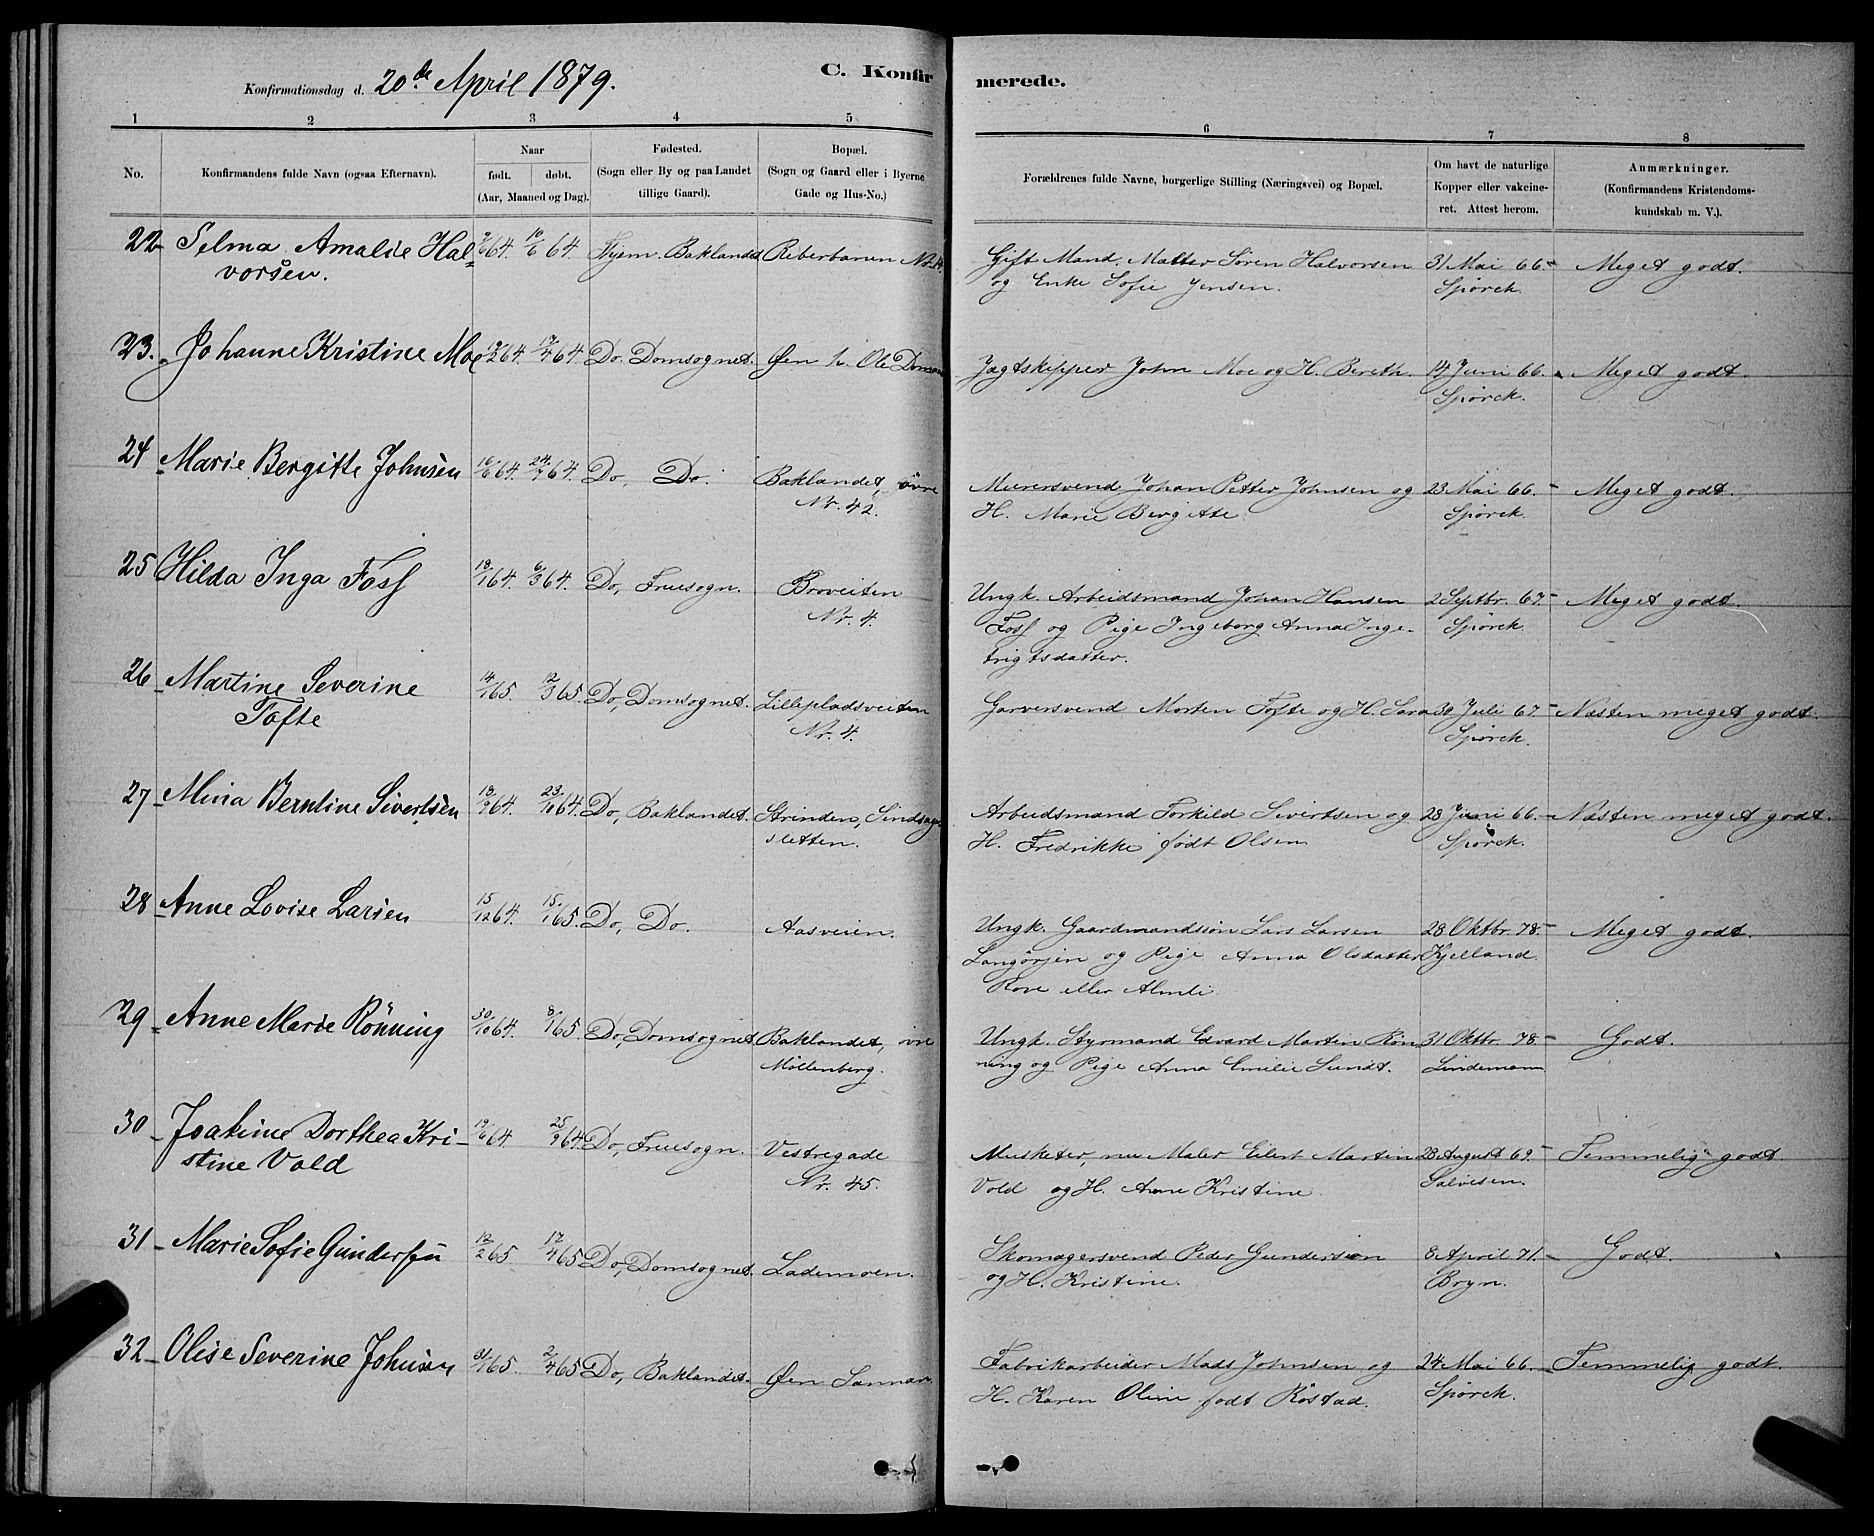 Konfirmationsdag d. 20de April 1879.
C. Konfirmerede.
1 2 3 4 5 6 7 8
No.
Konfirmandens fulde Navn (ogsaa Efternavn).
Naar
født. døbt.
(Aar, Maaned og Dag).
Fødested.
(Sogn eller By og paa Landet
tillige Gaard).
Bopæl.
(Sogn og Gaard eller i Byerne
Gade og Hus-No.)
Forældrenes fulde Navne, borgerlige Stilling (Næringsvei) og Bopæl.
Om havt de naturlige
Kopper eller vakcine-
ret. Attest herom.
Anmærkninger.
(Konfirmandens Kristendoms-
kundskab m. V.).
22 Selma Amalie Hal- 9/6 64. 10/6 64. Baklandet Reberbanen No. 14. Gift Mand, Søren Halvorsen 31 Mai 66. Meget godt.
vorsen. og Enke Sofie Jensen. Spörck.
23. Johanne Kristine Moe 64. 17/4 64. Do. Domsognet. Øen h. Ole Jagtskipper John Moe og H. Bereth. 14 Juni 66. Meget godt.
Spörck.
24 Marie Bergitte Johnsen 16/6 64. 24/7 64. Do, Do. Baklandet, övre Murersvend Johan Petter Johnsen og 23 Mai 66. Meget godt.
Nr. 42. H. Marie Bergitte. Spörck.
25 Hilda Inga Foss 18/1 64. 6/3 64. Do, Fruesogn. Broveiten Ungk. Arbeidsmand Johan Hansen 2 Septbr. 67. Meget godt.
Nr. 4. Foss og Pige Ingeborg Anna Inge- Spörck.
brigtsdatter.
26 Martine Severine 14/1 65. 12/3 65. Do, Domsognet. Lillepladsveiten Garversvend Morten Tofte og H. Sara 30 Juli 67. Næsten meget godt.
Tofte Nr. 4. Spörck.
27 Mina Berntine Sivertsen 18/9 64. 23/10 64. Do, Baklandet. Strinden, Arbeidsmand Torkild Sivertsen og 28 Juni 66. Næsten meget godt.
sletten. H. Fredrikke födt Olsen Spörck.
28 Anne Lovise Larsen 15/12 64. 15/1 65. Do, Do. Aasveien. Ungk. Gaardmandsön Lars Larsen 28 Oktbr. 78. Meget godt.
Langörjen og Pige Anna Olsdatter Kjelland.
eller Almli.
29 Anne Marie Rönning 30/10 64. 8/1 65. Do, Domsognet Baklandet, övre Ungk. Styrmand Edvard Martin Rön- 31 Oktbr. 78. Godt.
Möllenberg. ning og Pige Anna Emilie Sundt. Lindemann
30 Joakime Dorthea Kri- 19/6 64 25/9 64. Do, Fruesogn. Vestregade Musketer, nu Maler Eilert Martin 28 August 69. Temmelig godt.
stine Vold Nr. 45. Vold og H. Anne Kristine. Salvesen.
31 Marie Sofie Gundersen 12/2 65. 17/4 65 Do, Domsognet. Lademoen. Skomagersvend Peder Gundersen 8 April 71. Godt.
og H. Kristine. Bryn.
32 Olise Severine Johnsen 31/1 65. 2/4 65 Do, Baklandet. Øen Fabrikarbeider Mads Johnsen og 24 Mai 66. Temmelig godt.
H. Karen Oline födt Röstad. Spörck.